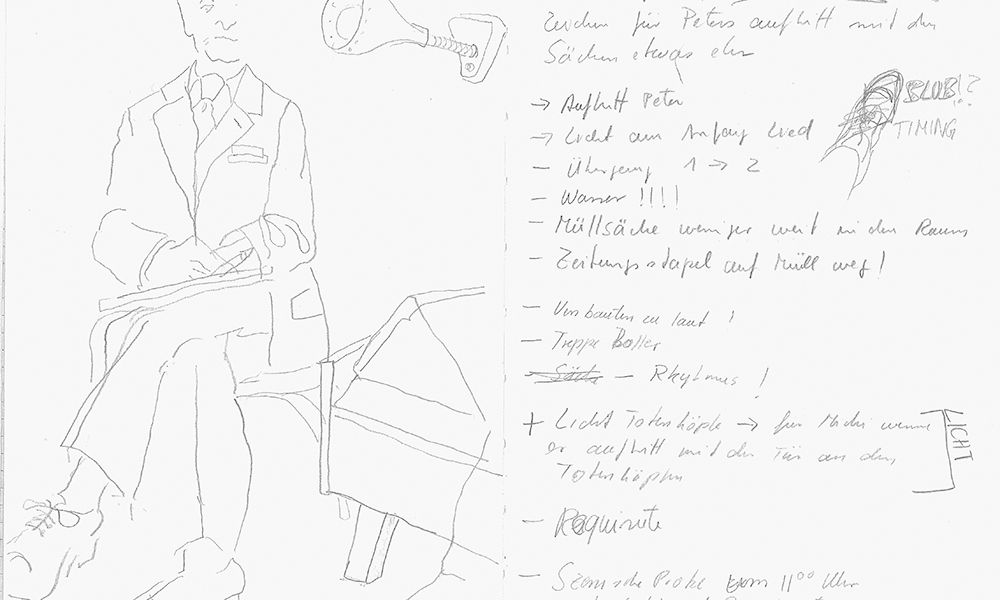 Zeichen für Peters auftritt mit den
Säcken etwas eher
→ Auftritt Peter
BLUB!?
→ Licht am Anfang Lied
TIMING
– Übergang 1 → 2
– Wasser !!!!
– Müllsäcke weniger weit in den Raum
– Zeitungsstapel auf Müll weg!
– Umbauten zu laut !
– Treppe
– Rhythmus !
+ Licht Totenköpfe → für Michi wenn
LICHT
er auftritt mit der Tür an den
Totenköpfen
– Requisite
– Szenische Probe vom 11⁰⁰ Uhr